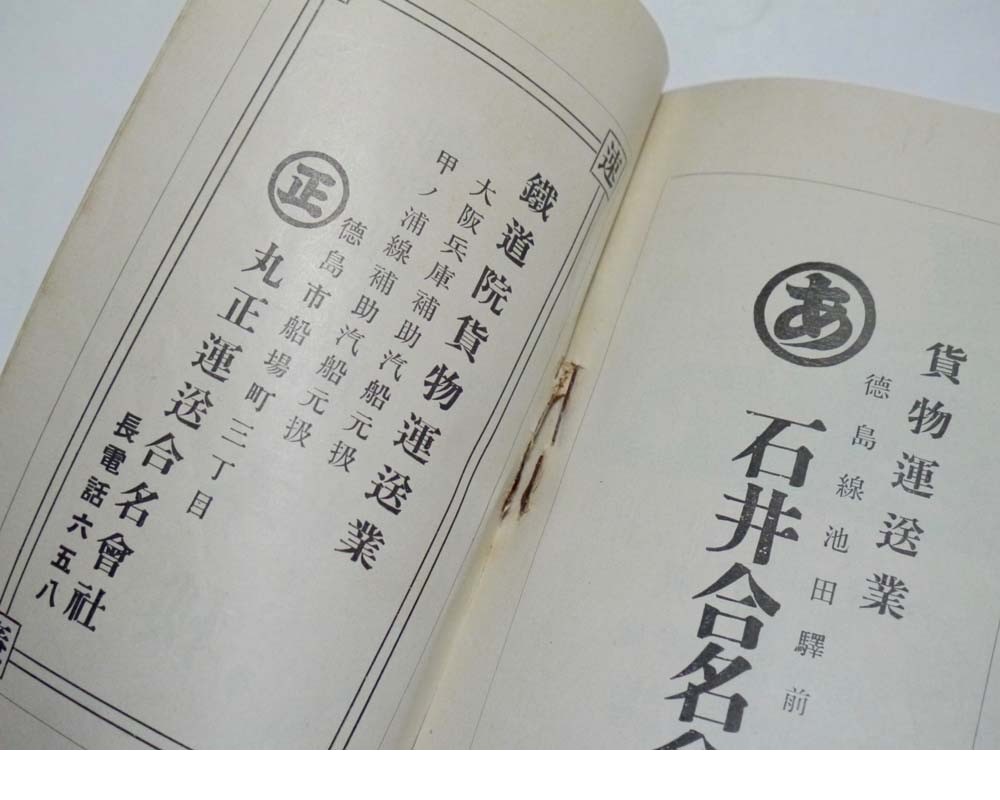 貨物運送業
德島線池田驛前
あ
石井合名
速
鐵道院貨物運送業
大阪兵庫補助汽船元扱
甲ノ浦線補助汽船元扱
德島市船場町三丁目
正
丸正運送合名會社
長電話六五八